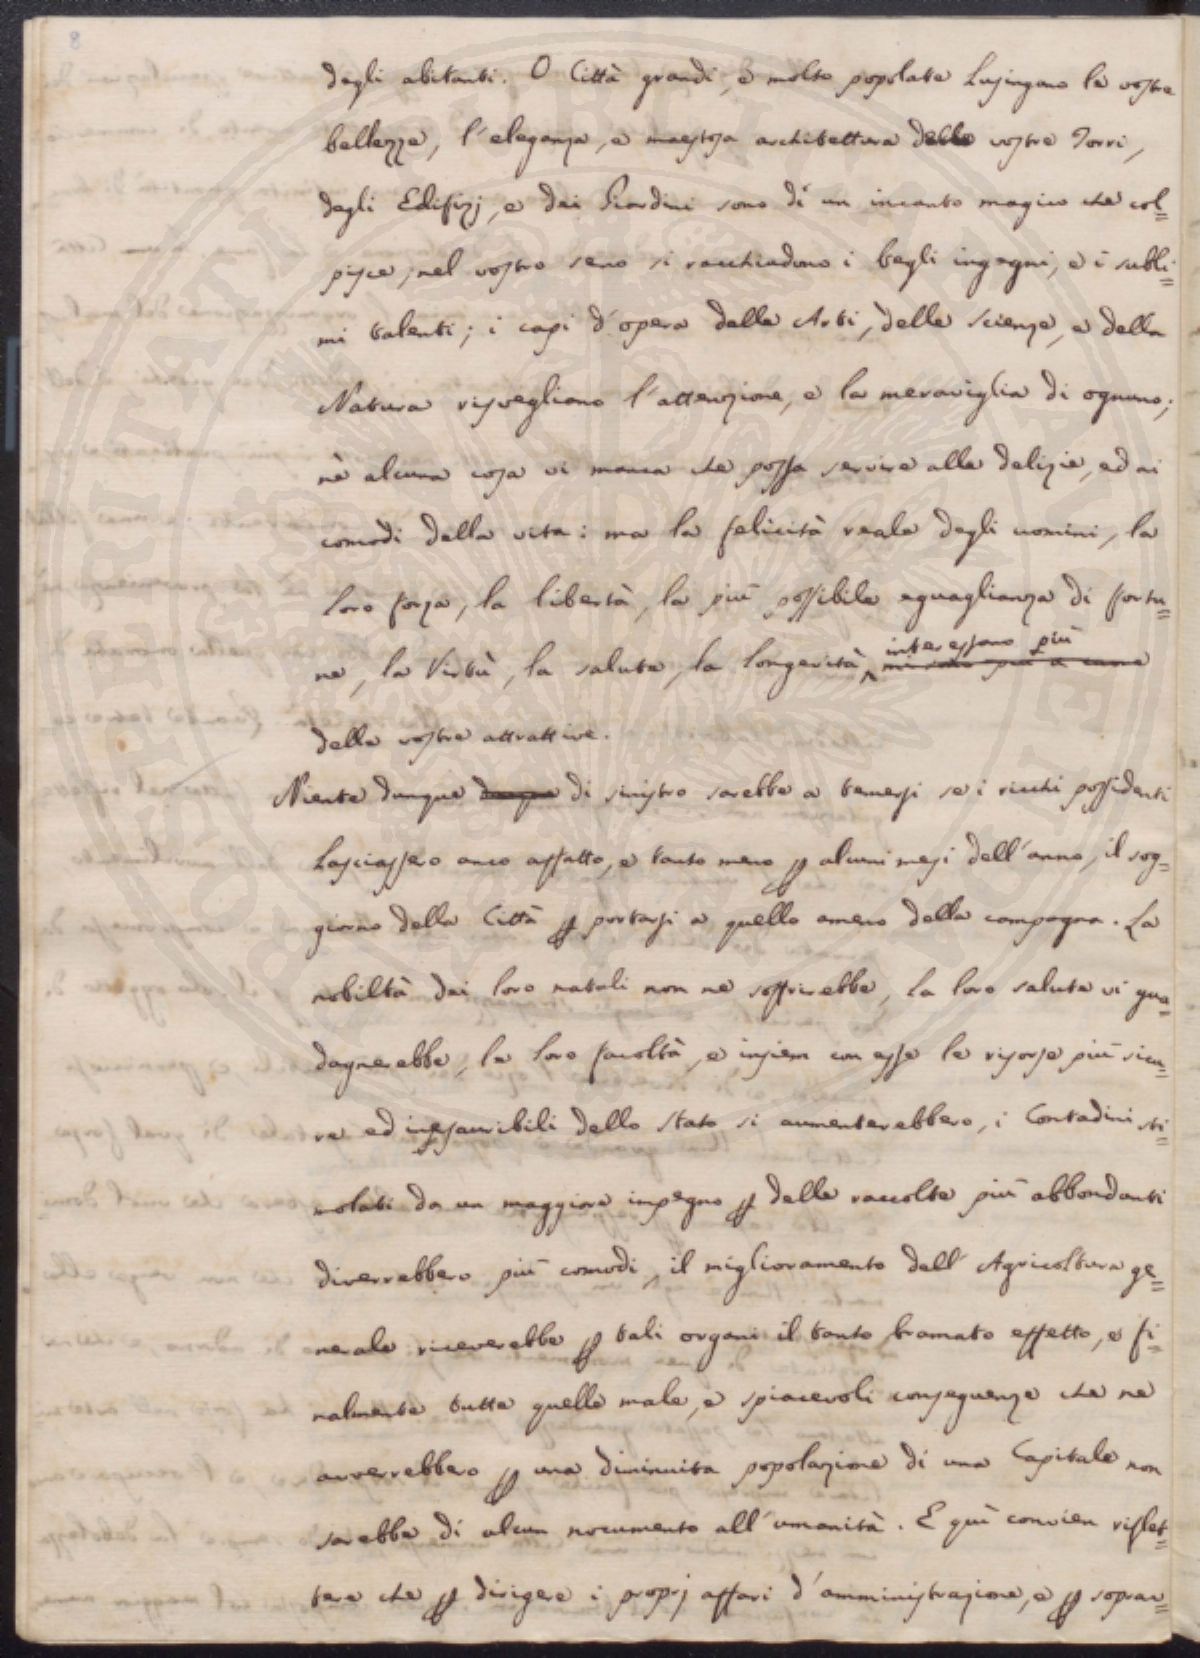 8
degli abitanti. O Città grandi, e molto popolate Lusingano le vostre
bellezze, l'eleganza, e maestosa architettura delle vostre Torri,
degli Edifizj, e dei Giardini sono di un incanto magico che col=
pisce; nel vostro seno si racchiudono i begli ingegni, e i subli=
mi talenti; i capi d'opera delle Arti, delle Scienze, e della
Natura risvegliano l'attenzione, e la meraviglia di ognuno;
nè alcuna cosa vi manca che possa servire alle delizie, ed ai
comodi della vita: ma la felicità reale degli uomini, la
loro forza, la libertà, la più possibile eguaglianza di fortu=
interessano più
ne, la Virtù, la salute, la longevità
delle vostre attrattive.
Niente dunque di sinistro sarebbe a temersi se i ricchi possidenti
Lasciassero anco affatto, e tanto meno p alcuni mesi dell'anno, il sog=
giorno della Città p portarsi a quello ameno della campagna. La
nobiltà dei loro natali non ne soffrirebbe, La loro salute vi gua=
dagnerebbe, le loro facoltà, e insiem con esse le risorse più sicu=
re ed inesauribili dello Stato si aumenterebbero, i Contadini sti=
molati da un maggiore impegno p delle raccolte più abbondanti
diverrebbero più comodi, il miglioramento dell'Agricoltura ge=
nerale riceverebbe p tali organi il tanto bramato effetto, e fi=
nalmente tutte quelle male, e spiacevoli conseguenze che ne
avverrebbero p una diminuita popolazione di una Capitale non
sarebbe di alcun nocumento all'umanità. E quì convien riflet=
tere che p dirigere i proprj affari d'amministrazione, e p soprav=